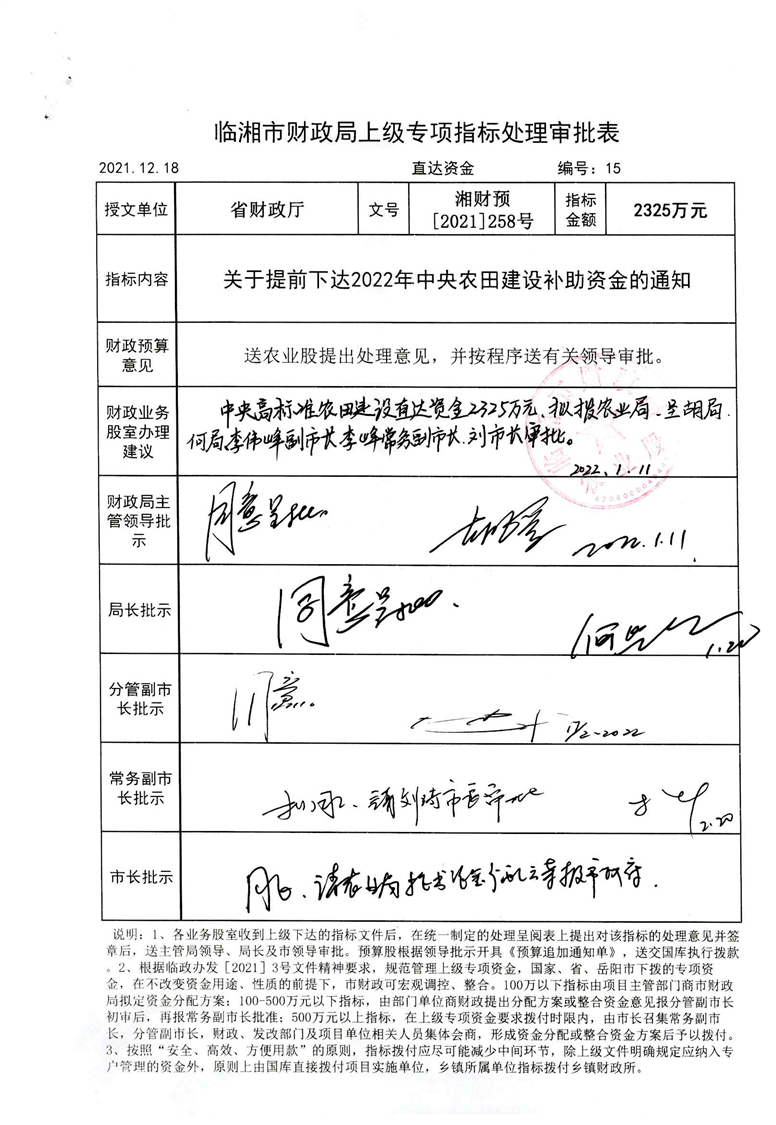 临湘市财政局上级专项指标处理审批表
2021.12.18 直达资金 编号：15
授文单位 省财政厅 文号 湘财预[2021]258号 指标金额 2325万元
指标内容 关于提前下达2022年中央农田建设补助资金的通知
财政预算意见 送农业股提出处理意见，并按程序送有关领导审批。
财政业务股室办理建议
中央高标准农田建设直达资金2325万元、拟拨农业局.呈胡局.
何局李伟峰副市长李峰常务副市长.刘市长审批。
2022.1.11
财政局主管领导批示 同意呈批 2022.1.11
局长批示 同意呈批. 何 1.20
分管副市长批示 同意. 2022
常务副市长批示 请刘 市长审批 2.20
市长批示 报市政府.
说明：1、各业务股室收到上级下达的指标文件后，在统一制定的处理呈阅表上提出对该指标的处理意见并签
章后，送主管局领导、局长及市领导审批。预算股根据领导批示开具《预算追加通知单》，送交国库执行拨款
。2、根据临政办发［2021］3号文件精神要求，规范管理上级专项资金，国家、省、岳阳市下拨的专项资
金，在不改变资金用途、性质的前提下，市财政可宏观调控、整合。100万以下指标由项目主管部门商市财政
局拟定资金分配方案；100-500万元以下指标，由部门单位商财政提出分配方案或整合资金意见报分管副市长
初审后，再报常务副市长批准；500万元以上指标，在上级专项资金要求拨付时限内，由市长召集常务副市
长，分管副市长，财政、发改部门及项目单位相关人员集体会商，形成资金分配或整合资金方案后予以拨付。
3、按照“安全、高效、方便用款”的原则，指标拨付应尽可能减少中间环节，除上级文件明确规定应纳入专
户管理的资金外，原则上由国库直接拨付项目实施单位，乡镇所属单位指标拨付乡镇财政所。